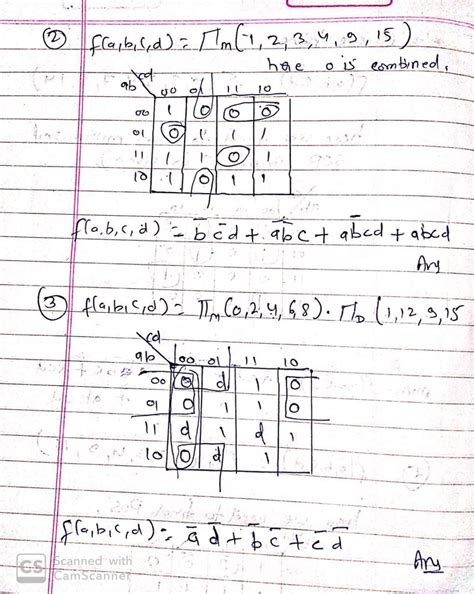 ② f(a,b,c,d) = Π_M(1,2,3,4,9,15)
here 0 is combined.
cd
ab 00 01 11 10
00 1 0 0 0
01 0 1 1 1
11 1 1 0 1
10 1 0 1 1
f(a,b,c,d) = b̅ c̅ d + a̅ b̅ c + a̅ b c̅ d̅ + abcd
Ans
③ f(a,b,c,d) = Π_M(0,2,4,6,8) · Π_D(1,12,9,15
cd
ab 00 01 11 10
00 0 d 1 0
01 0 1 1 0
11 d 1 d 1
10 0 d 1
f(a,b,c,d) = a̅ d̅ + b̅ c̅ + c̅ d̅
Ans
CS Scanned with
CamScanner